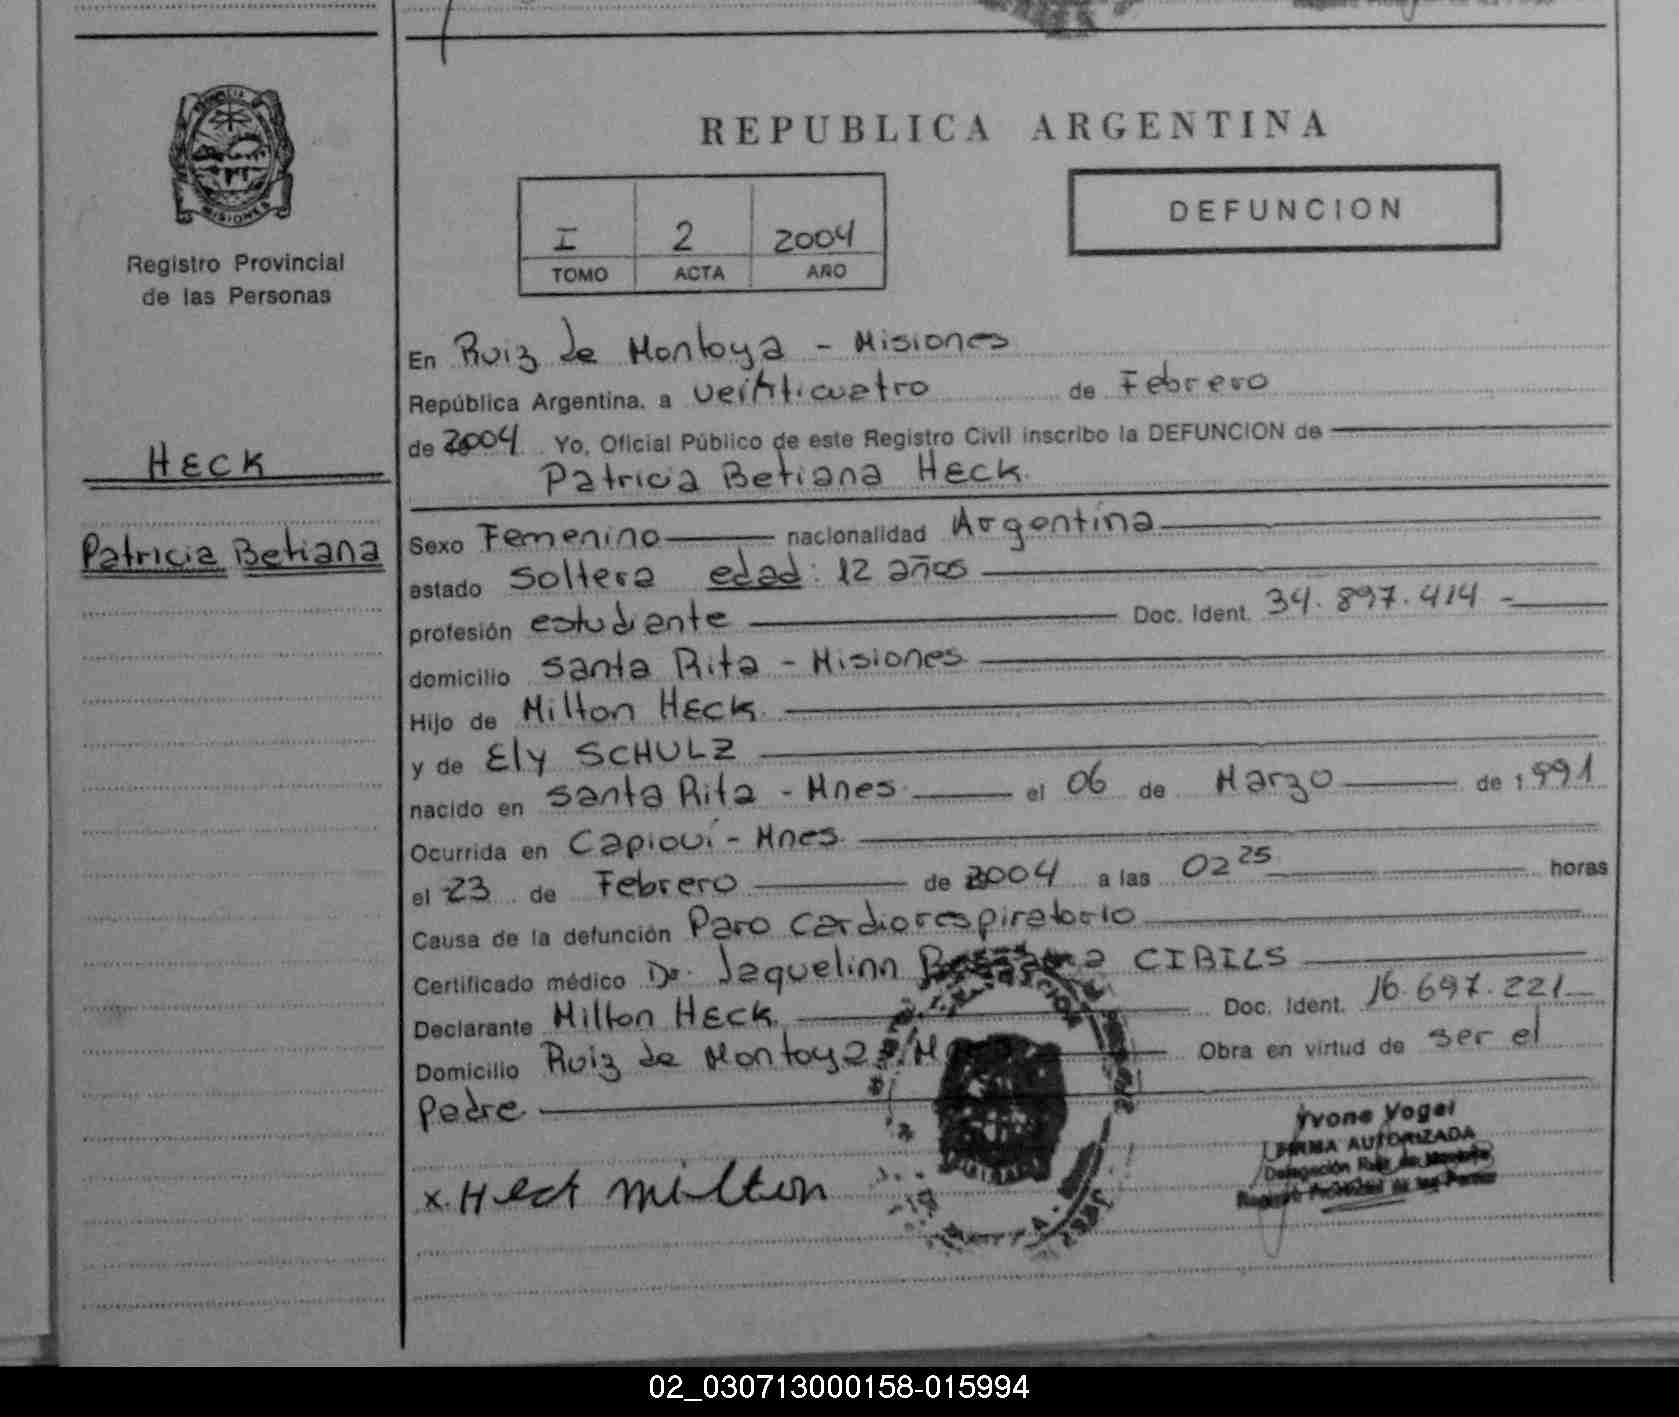 PROVINCIA DE
MISIONES
Registro Provincial
de las Personas
HECK
Patricia Betiana
REPUBLICA ARGENTINA
I 2 2004
TOMO ACTA AÑO
DEFUNCION
En Ruiz de Montoya - Misiones
República Argentina, a veinticuatro de Febrero
de 2004 Yo, Oficial Público de este Registro Civil inscribo la DEFUNCION de
Patricia Betiana Heck.
Sexo Femenino nacionalidad Argentina
estado soltera edad: 12 años
profesión estudiante Doc. Ident. 34.897.414 -
domicilio Santa Rita - Misiones
Hijo de Milton Heck.
y de Ely SCHULZ
nacido en Santa Rita - Mnes. el 06 de Marzo de 1991
Ocurrida en Capioví - Mnes.
el 23 de Febrero de 2004 a las 02 25 horas
Causa de la defunción Paro cardiorespiratorio
Certificado médico Dr. Jaquelinn CIBILS
Declarante Milton Heck. Doc. Ident. 16.697.221
Domicilio Ruiz de Montoya Obra en virtud de ser el
Padre
x. Heck Milton
Yvone Vogel
FIRMA AUTORIZADA
Delegación Ruiz de Montoya
Registro Provincial de las Personas
02_030713000158-015994